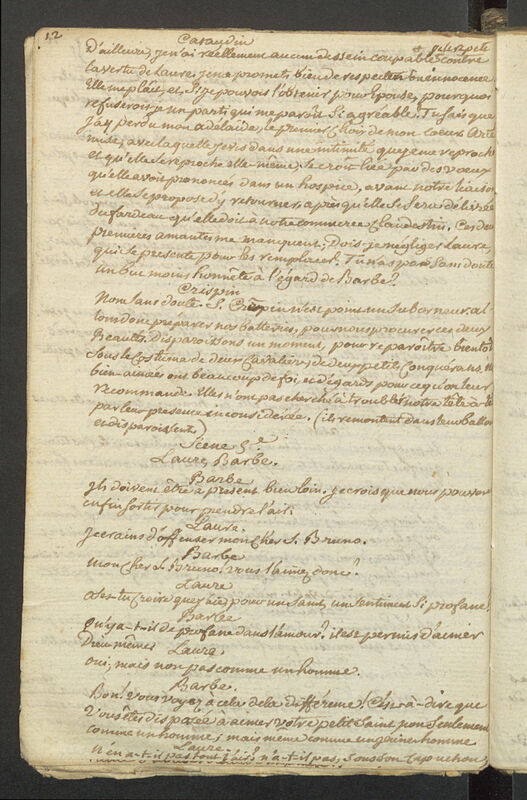 12
Caraudin
D'ailleurs, je n'ai réellement aucun dessein coupable contre
la vertu de Laure. Je me promets bien de respecter son innocence
Elle me plait, et si je pouvois l'obtenir pour Epouse, pourquoi
refuserois-je un parti qui me paroît si agreable? Tu sais que
j'ay perdu mon adelaïde, le premier choix de mon coeur. Arte
mise, avec laquelle je vis dans une intimité que je me reproche
et qu'elle se reproche elle-même, se croit liée par des voeux
qu'elle avoit prononcés dans un hospice, avant notre liaison
et elle se propose d'y retourner, après qu'elle se sera délivrée
du fardeau qu'elle doit à notre commerce clandestin. Ces deux
premieres amantes me manquent. Dois-je négliger Laure,
qui se presente pour les remplacer? Tu n'as pas sans doute
un but moins honnête à l'égard de Barbe?
Crispin
Non sans doute. S. Crepin n'est point un suborneur. al
lons donc préparer nos batteries, pour nous procurer ces deux
Beautés. Disparoissons un moment, pour reparoître bientôt
sous le costume de deux Cavaliers, de deux petits Conquérans. Nos
bien-aimées ont beaucoup de foi, et d'égards pour ce qu'on leur
recommande. Elles n'ont pas cherché à troubler notre tête-à-tête
par leur presence inconsidérée. (ils remontent dans leur ballon
et disparoissent)
Scene 5.e
Laure, Barbe.
Barbe
Ils doivent être à present bien loin. Je crois que nous pouvons
enfin sortir pour prendre l'air.
Laure.
Je crains d'offenser mon cher S. Bruno.
Barbe
mon cher S. Bruno. vous l'aimez donc?
Laure
oses-tu croire que j'aie pour un saint, un sentiment si profane?
Barbe
qu'y a-t-il de profane dans l'amour? il est permis d'aimer
Dieu même.
Laure.
oui, mais non pas comme un homme.
Barbe.
Bon! vous voyez à cela de la différence! C'est-à-dire que
vous êtes disposée à aimer votre petit saint non seulement
comme un homme; mais même comme un jeune homme
Laure.
n'a-t-il pas, sous son capuchon,